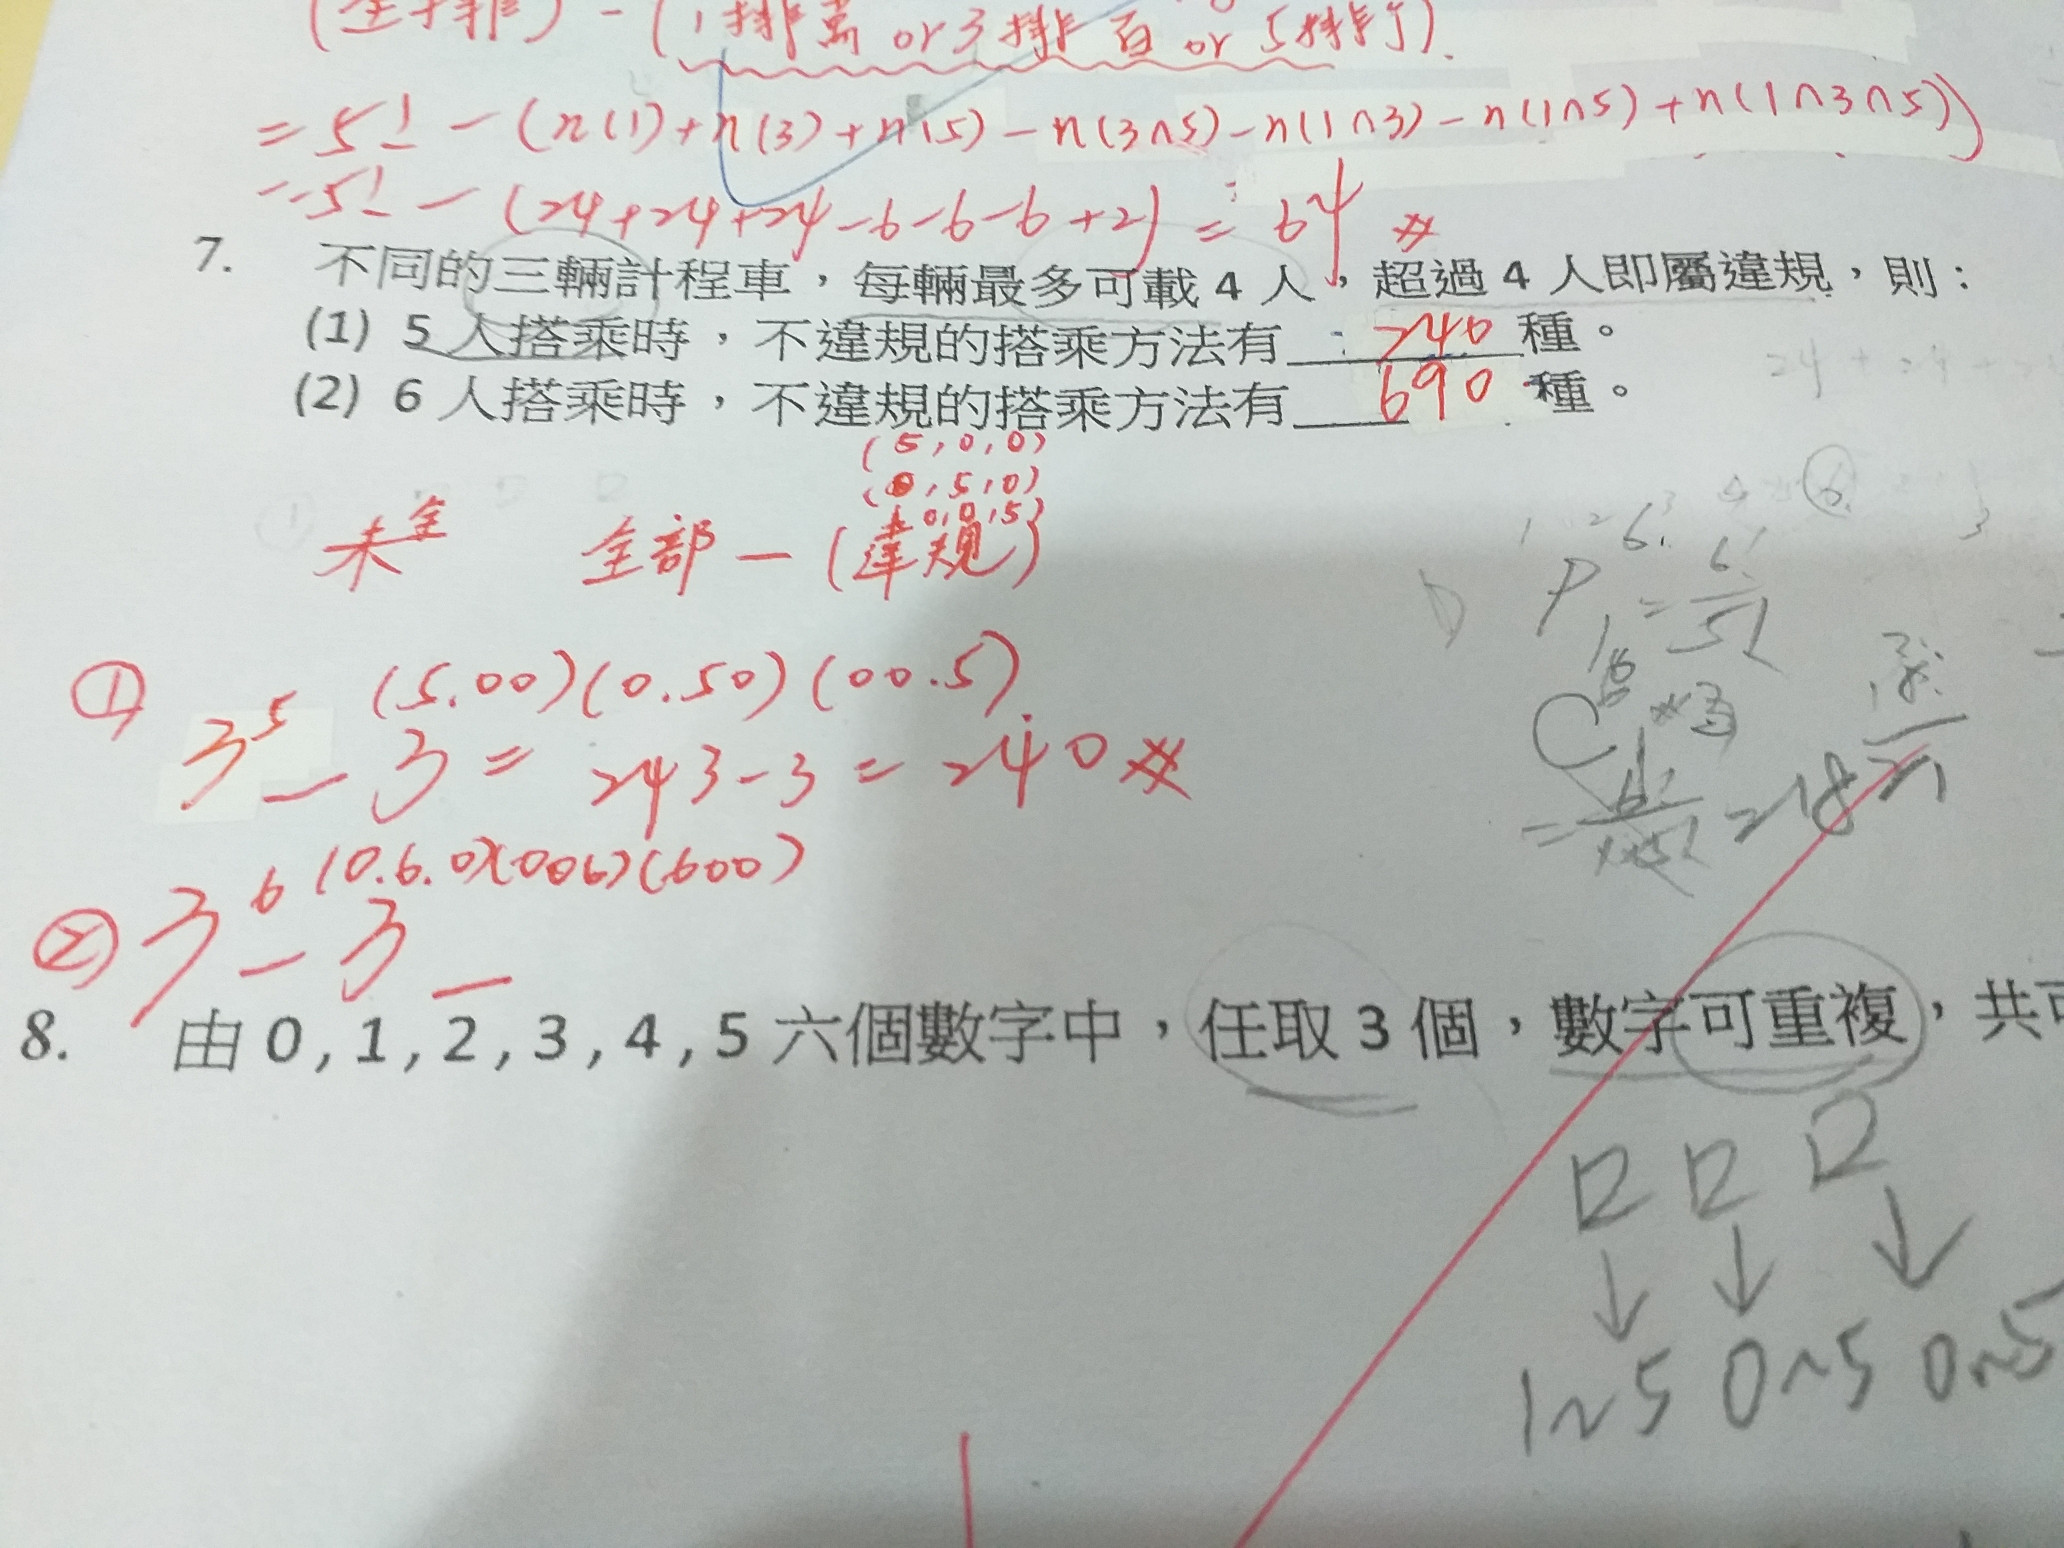 (全排) - (1排萬 or 3排百 or 5排个).
= 5! - (n(1)+n(3)+n(5) - n(3∩5) - n(1∩3) - n(1∩5) + n(1∩3∩5))
= 5! - (24+24+24-6-6-6+2) = 64 #
7. 不同的三輛計程車，每輛最多可載 4 人，超過 4 人即屬違規，則：
(1) 5 人搭乘時，不違規的搭乘方法有 240 種。
(2) 6 人搭乘時，不違規的搭乘方法有 690 種。
(5,0,0)
(0,5,0)
(0,0,5)
全部 - (違規)
① (5.00)(0.50)(00.5)
3⁵ - 3 = 243-3 = 240 #
(0.6.0)(006)(600)
② 3⁶ - 3 -
8. 由 0 , 1 , 2 , 3 , 4 , 5 六個數字中，任取 3 個，數字可重複，共可
1~5 0~5 0~5